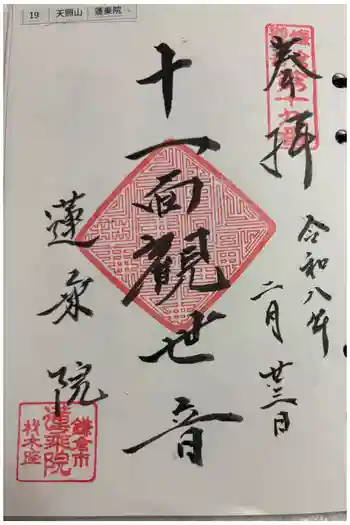 19 天照山 蓮乗院
奉拝
令和八年
二月廿三日
十一面観世音
蓮乗院
鎌倉市
材木座
蓮乗院